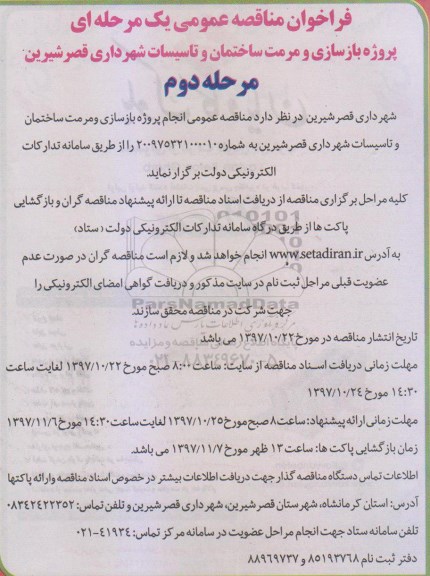 فراخوان مناقصه عمومی یک مرحله ای
پروژه بازسازی و مرمت ساختمان و تاسیسات شهرداری قصرشیرین
مرحله دوم
شهرداری قصرشیرین در نظر دارد مناقصه عمومی انجام پروژه بازسازی ومرمت ساختمان
و تاسیسات شهرداری قصرشیرین به شماره ۲۰۰۹۷۵۳۲۱۰۰۰۰۱۰ را از طریق سامانه تدارکات
الکترونیکی دولت برگزار نماید.
کلیه مراحل برگزاری مناقصه از دریافت اسناد مناقصه تا ارائه پیشنهاد مناقصه گران و بازگشایی
پاکت ها از طریق درگاه سامانه تدارکات الکترونیکی دولت ( ستاد)
به آدرس www.setadiran.ir انجام خواهد شد و لازم است مناقصه گران در صورت عدم
عضویت قبلی مراحل ثبت نام در سایت مذکور و دریافت گواهی امضای الکترونیکی را
جهت شرکت در مناقصه محقق سازند.
تاریخ انتشار مناقصه در مورخ ۱۳۹۷/۱۰/۲۲ می باشد
مهلت زمانی دریافت اسناد مناقصه از سایت: ساعت ۸:۰۰ صبح مورخ ۱۳۹۷/۱۰/۲۲ لغایت ساعت
۱۴:۳۰ مورخ ۱۳۹۷/۱۰/۲۴
مهلت زمانی ارائه پیشنهاد: ساعت ۸ صبح مورخ ۱۳۹۷/۱۰/۲۵ لغایت ساعت ۱۴:۳۰ مورخ ۱۳۹۷/۱۱/۶
زمان بازگشایی پاکت ها: ساعت ۱۳ ظهر مورخ ۱۳۹۷/۱۱/۷ می باشد.
اطلاعات تماس دستگاه مناقصه گذار جهت دریافت اطلاعات بیشتر در خصوص اسناد مناقصه وارائه پاکتها
آدرس: استان کرمانشاه، شهرستان قصرشیرین، شهرداری قصرشیرین و تلفن تماس: ۰۸۳۴۲۴۲۲۳۵۲
تلفن سامانه ستاد جهت انجام مراحل عضویت در سامانه مرکز تماس: ۴۱۹۳۴-۰۲۱
دفتر ثبت نام ۸۵۱۹۳۷۶۸ و ۸۸۹۶۹۷۳۷
ParsNamadData